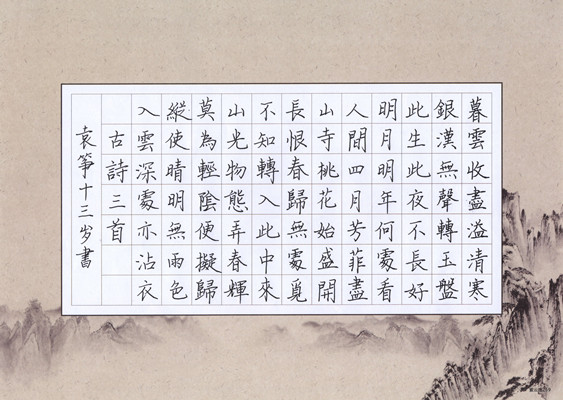 暮雲收盡溢清寒
銀漢無聲轉玉盤
此生此夜不長好
明月明年何處看
人間四月芳菲盡
山寺桃花始盛開
長恨春歸無處覓
不知轉入此中來
山光物態弄春輝
莫為輕陰便擬歸
縱使晴明無雨色
入雲深處亦沾衣
古詩三首
袁箏十三岁書